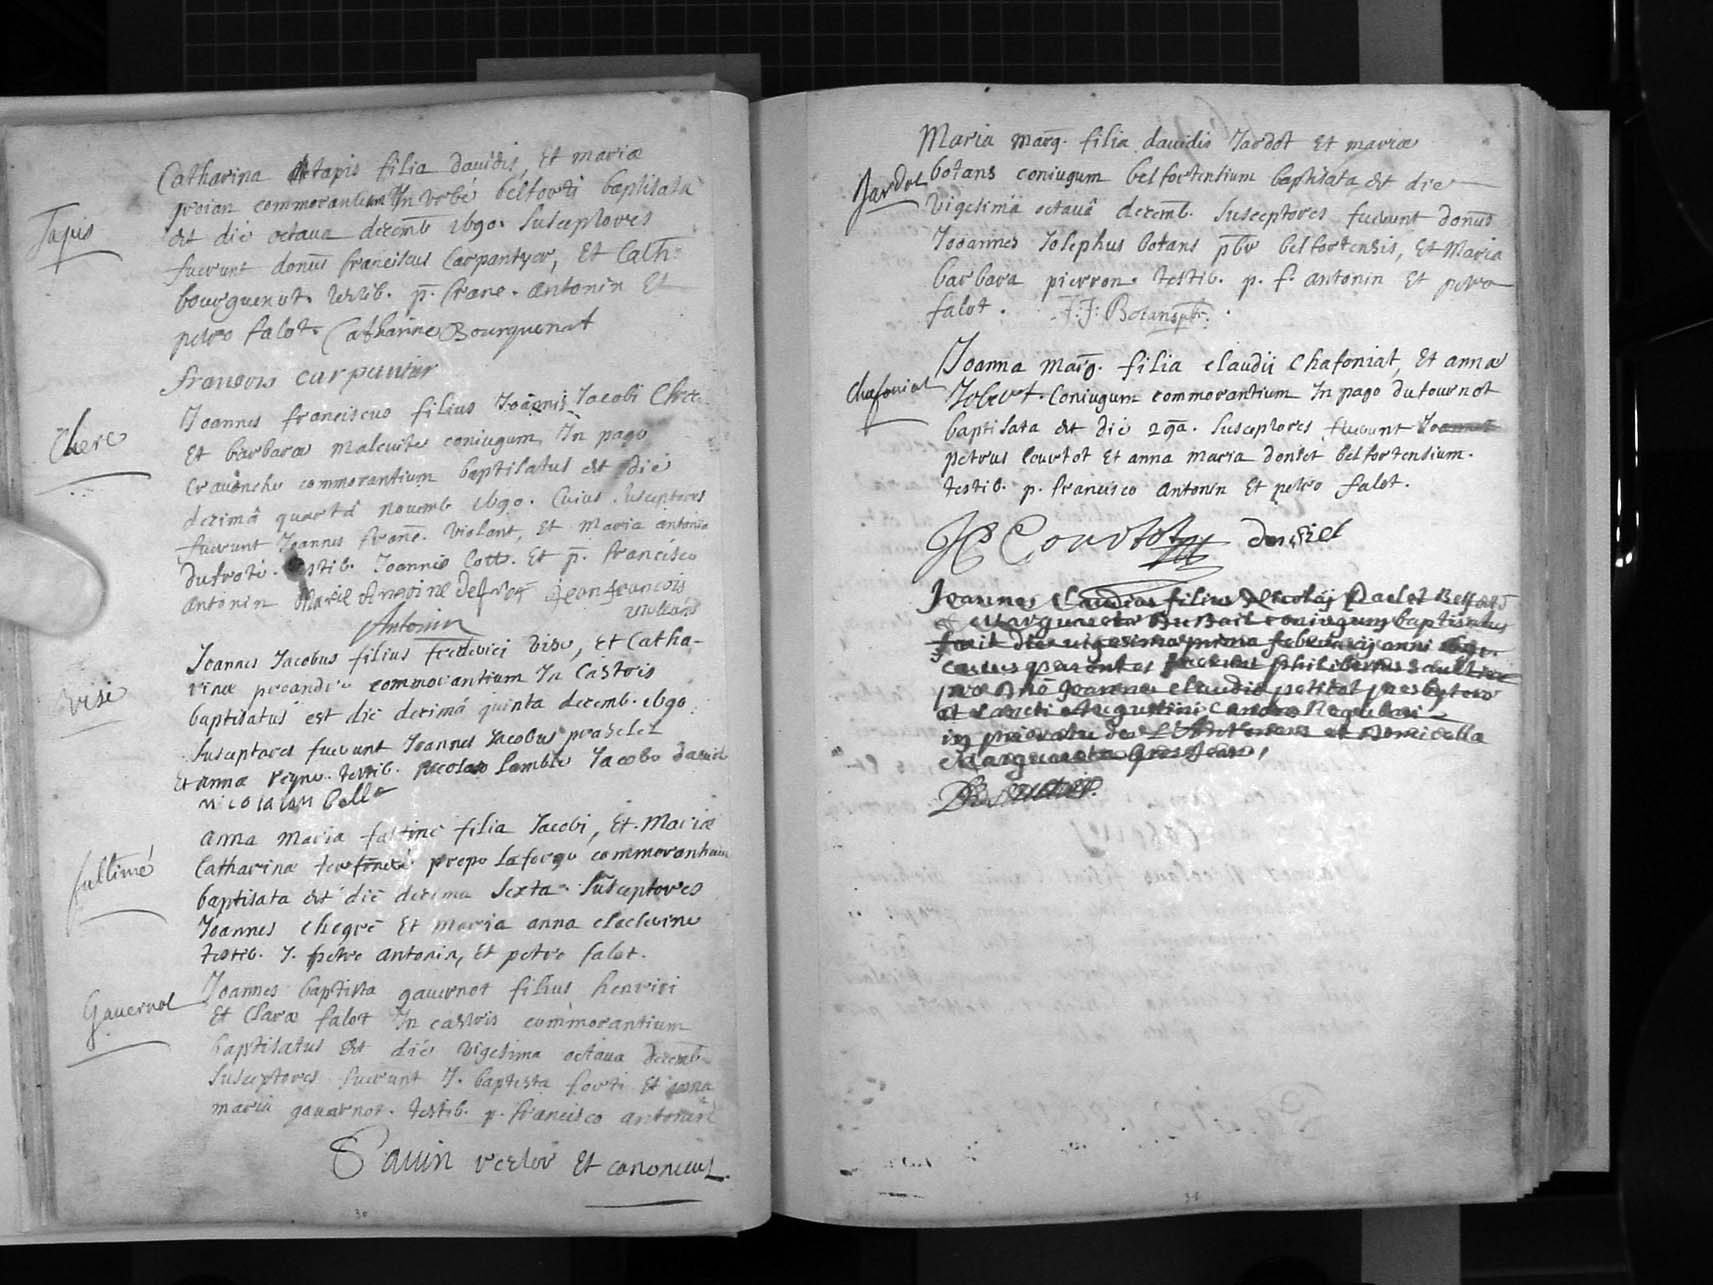 Catharina tapis filia davidis, Et mariæ
proian commorantium In Urbe belforti baptisata
est die octava decemb 1690. Susceptores
Tapis
fuerunt donus franciscus Carpantyer, Et Cath.
bourquenot. testib. p. franc. antonin Et
petro falot. Catharine Bourquenot
francois carpentier
Joannes franciscus filius Joannis Jacobi Chere
Chere
Et barbaræ malcuite coniugum, In pago
Cravonche commorantium baptisatus est die
decimâ quartâ novemb 1690. Cuius susceptores
fuerunt Joannes franc. violant, Et maria antonia
dufroté. testib. Joannis Cott. Et p. francisco
antonin Marie Antoine Jean francois
violant
Antonin
Joannes Jacobus filius frederici vise, Et Catha-
rinæ preandre commorantium In Castris
vise
baptisatus est die decimâ quinta decemb. 1690
Susceptores fuerunt Joannes Jacobus praslet
Et anna regne. testib. Nicolao lamble Jacobo David
nicola lambelle
anna maria faltine filia Jacobi, Et Mariæ
Catharinæ prope laforge commorantium
fultimé
baptisata est die decima sexta. Susceptores
Joannes chegre Et maria anna
testib. J. petro antonin, Et petro falot.
Joannes baptista gauernot filius henrici
Gauernot
Et Claræ falot In castris commorantium
baptisatus est die vigesima octava decemb
Susceptores fuerunt J. baptista forti Et anna
maria gauarnot. testib. p. francisco antonin
Sauin rector Et canonicus.
30
Maria marg. filia davidis Jardot Et mariæ
Jardot
botans coniugum belfortensium baptisata est die
vigesimâ octavâ decemb. Susceptores fuerunt donus
Joannes Josephus botans pbr belfortensis, Et Maria
barbara pierron. testib. p. f. antonin Et petro
falot. J. J. Botans pbr.
Joanna marg. filia claudii Chafoniat, Et annæ
Chafoniat
Jobert. Coniugum commorantium In pago dutournot
baptisata est die 29a. Susceptores fuerunt Joannes
petrus Courtot Et anna maria doniet belfortensium.
testib. p. francisco antonin Et petro falot.
Courtot doniel
Joannes Claudius filius Nicolaj
Margaretæ coniugum baptisatus
fuit die vigesima prima februarij anni
cuius parentes fuerunt philibertus
pro Dno Joanne Claudio petitot presbytero
et sancti Augustini Canon. Regulari
in prioratu de et Domicella
Margareta
31